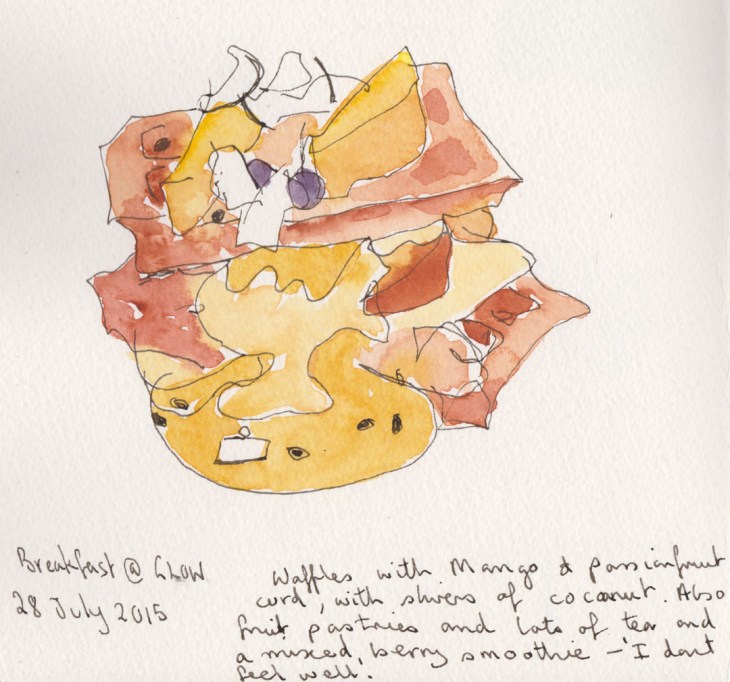 Breakfast @ GLOW
28 July 2015
Waffles with Mango & passionfruit
curd, with slivers of coconut. Also
fruit pastries and lots of tea and
a mixed berry smoothie – 'I dont
feel well.